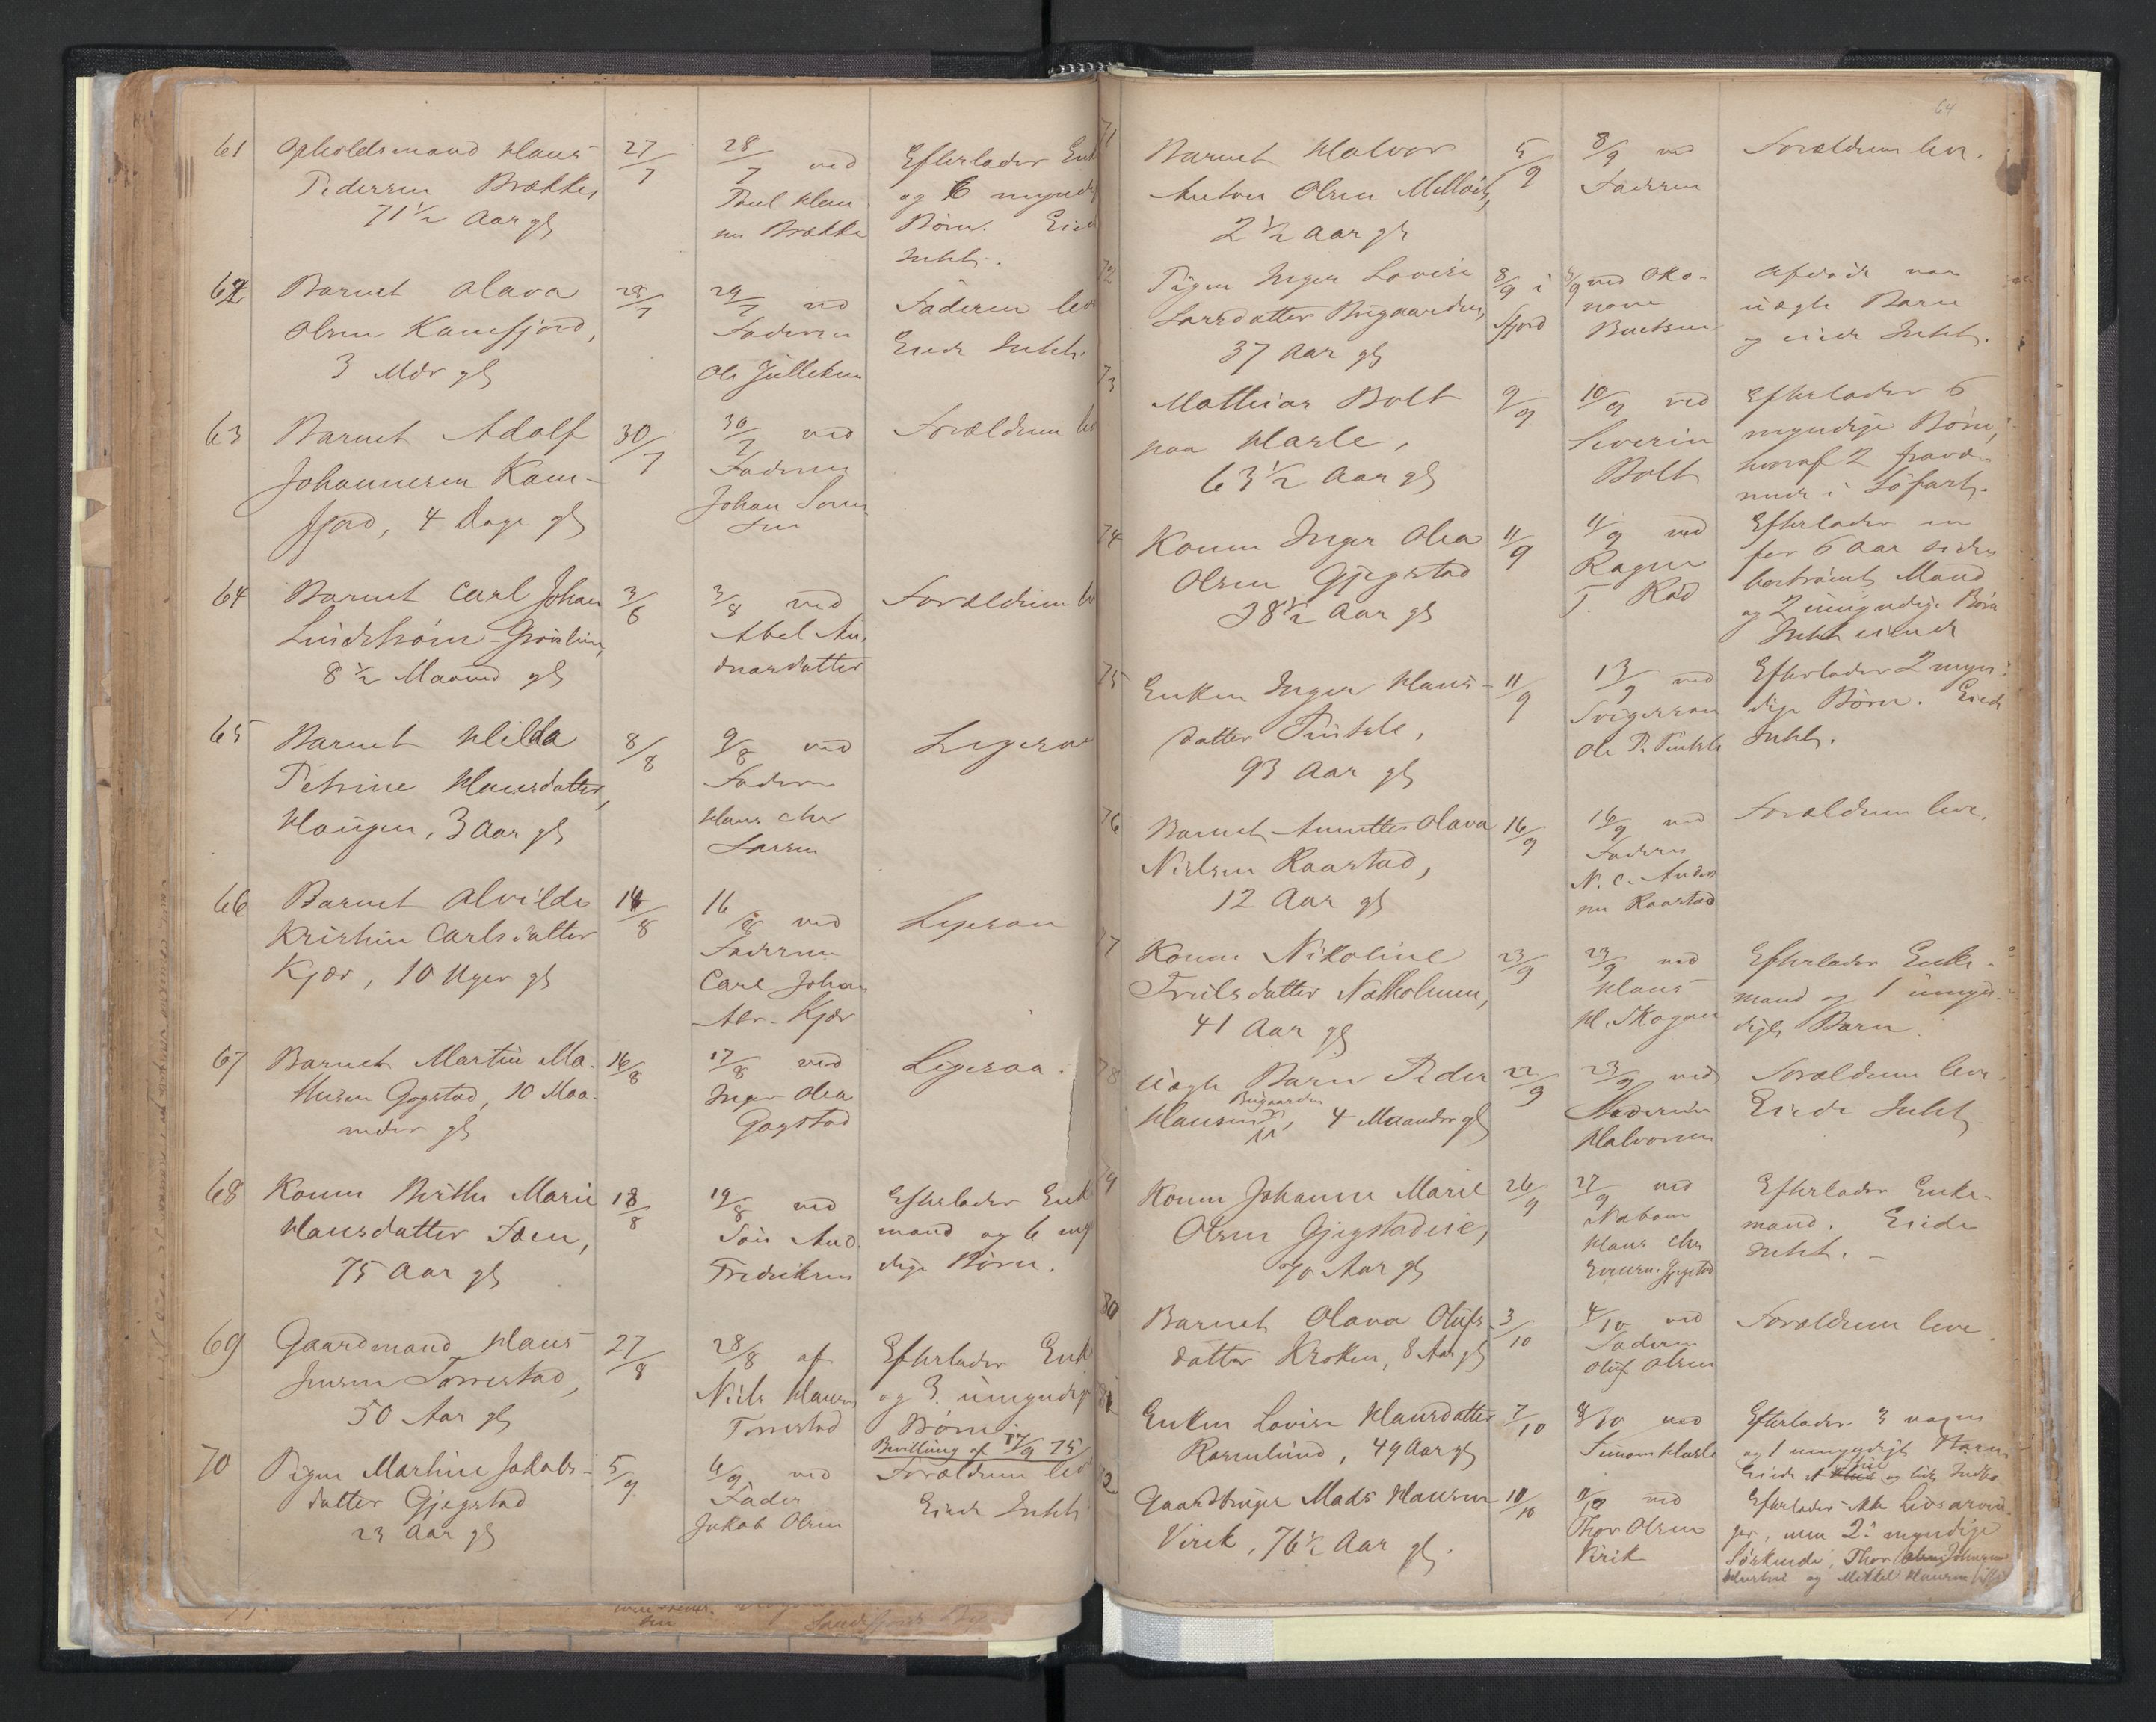 61 Opholdsmand Hans 27/7 28/7 ved Efterlader Enk
Pedersen Brække, Poul Han og 6 myndi
71½ Aar gl sen Brække Børn. Eied
Intet.
62 Barnet Olava 28/7 29/7 ved Faderen lev
Olsen Kamfjord, Faderen Eiede Intet.
3 Mdr gl Ole
63 Barnet Adolf 30/7 30/7 ved Forældrene le
Johannesen Kam- Faderen
fjord, 4 Dage gl Johan
sen
64 Barnet Carl Johan 3/8 3/8 ved Forældrene le
Lindstrøm Abel An-
8½ Maaned gl dreasdatter
65 Barnet Hilda 8/8 9/8 ved Ligesaa
Petrine Hansdatter, Faderen
Haugen, 3 Aar gl Hans Chr
Larsen
66 Barnet Alvilde 14/8 16/8 ved Ligesaa
Kristine Carlsdatter Faderen
Kjær, 10 Uger gl Carl Johan
Kjær
67 Barnet Martin Ma- 16/8 17/8 ved Ligesaa.
thisen Gogstad, 10 Maa- Inger Olea
neder gl Gogstad
68 Konen Berthe Marie 18/8 19/8 ved Efterlader Enk
Hansdatter Foen, Søn And. mand og 6 my
75 Aar gl Fredriksen dige Børn.
69 Gaardmand Hans 27/8 28/8 af Efterlader Enk
Jensen Torrestad, Niels Hansen og 3 umyndige
50 Aar gl Torrestad Børn.
Bevilling af 17/9 75
70 Pigen Marthine Jakobs- 5/9 6/9 ved Forældrene lev
datter Gjegstad Fader Eiede Intet
23 Aar gl Jakob Olsen
64
71 Barnet Halvor 5/9 8/9 ved Forældrene leve.
Anton Olsen Faderen
2½ Aar gl
72 Pigen Inger Lovise 8/9 i 8/9 ved Øko- Afdøde var
Larsdatter Bugaarden, Sfjord nom uægte Barn
37 Aar gl Bentsen og eiede Intet.
73 Mathias Bolt 9/9 10/9 ved Efterlader 6
paa Hasle, Severin myndige Børn,
63½ Aar gl Bolt hvoraf 2 fravæ-
rende i Søfart.
74 Konen Inger Olea 11/9 11/9 ved Efterlader en
Olsen Gjegstad Ragna for 6 Aar siden
38½ Aar gl T. Rød bortrømt Mand
og 2 umyndige Børn
Intet eiende
75 Enken Inger Hans- 11/9 13/9 ved Efterlader 2 myn-
datter Pindsle, Svigersøn dige Børn. Eiede
93 Aar gl Ole P. Pindsle Intet.
76 Barnet Annette Olava 16/9 16/9 ved Forældrene leve.
Nielsen Raastad, Faderen
12 Aar gl N. C. Ander
sen Raastad
77 Konen Nikoline 23/9 23/9 ved Efterlader Enke-
Truelsdatter Natholmen, Hans mand og 1 umyn-
41 Aar gl H. Skogan digt Barn.
78 Uægte Barn Peder 22/9 23/9 ved Forældrene leve.
Bugaarden
Hansen, 4 Maaneder gl Moderen Eiede Intet
Halvorsen
79 Konen Johanne Marie 26/9 27/9 ved Efterlader Enke-
Olsen Gjegstadeie, Naboen mand. Eiede
70 Aar gl Hans Chr Intet. -
Gjegstad
80 Barnet Olava Olufs- 3/10 4/10 ved Forældrene leve.
datter Kroken, 8 Aar gl Faderen
Oluf Olsen
81 Enken Lovise Hansdatter 7/10 8/10 ved Efterlader 3 voxne
Rosenlund, 49 Aar gl Simon Hasle og 1 umyndigt Barn
Eiede et og lidt Indbo
82 Gaardbruger Mads Hansen 10/10 11/10 ved Efterlader ikke Livsarvin-
Virik, 76½ Aar gl. Thor Olsen ger, men 2 myndige
Virik Søskende, Thor Johnsen
og Mikkel Hansen